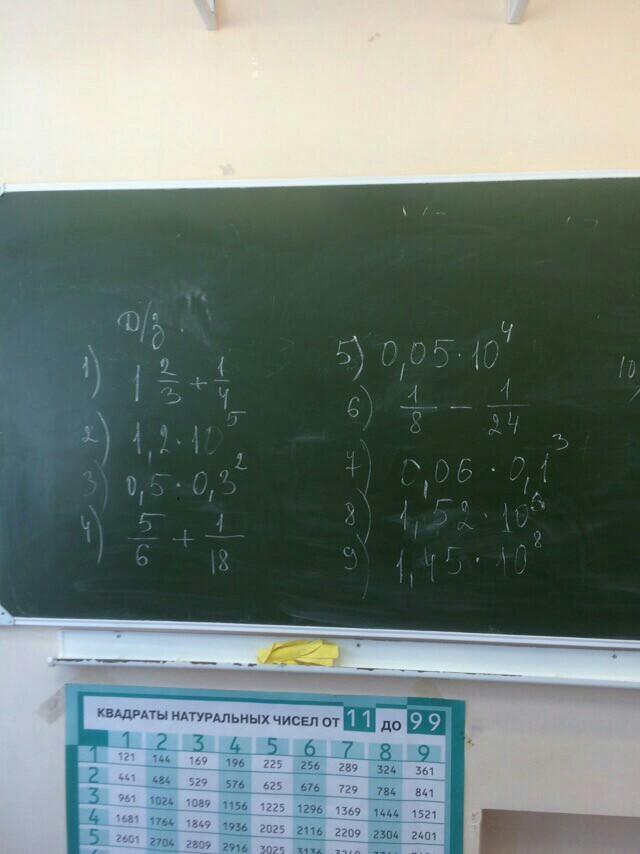 Д/з
1) 1 2/3 + 1/4
2) 1,2 · 10⁵
3) 0,5 · 0,3²
4) 5/6 + 1/18
5) 0,05 · 10⁴
6) 1/8 − 1/24
7) 0,06 · 0,1³
8) 1,52 · 10
9) 1,45 · 10⁸
10)
КВАДРАТЫ НАТУРАЛЬНЫХ ЧИСЕЛ ОТ 11 ДО 99
1 2 3 4 5 6 7 8 9
1 121 144 169 196 225 256 289 324 361
2 441 484 529 576 625 676 729 784 841
3 961 1024 1089 1156 1225 1296 1369 1444 1521
4 1681 1764 1849 1936 2025 2116 2209 2304 2401
5 2601 2704 2809 2916 3025 3136 3249 3364 3481